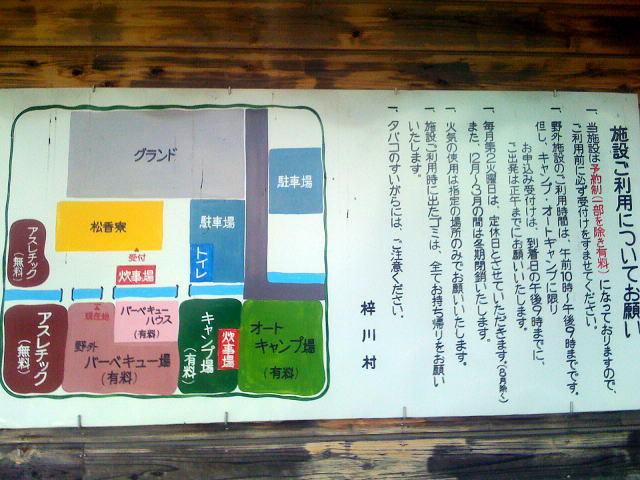 施設ご利用についてお願い
一、当施設は予約制(一部を除き有料)になっておりますので、
ご利用前に必ず受付けをすませてください。
一、野外施設のご利用時間は、午前10時~午後9時までです。
但し、キャンプ・オートキャンプに限り
お申込み受付けは、到着日の午後9時までに、
ご出発は正午までにお願いいたします。
一、毎月第2火曜日は、定休日とさせていただきます。(8月除く)
また、12月~3月の間は冬期閉鎖いたします。
一、火気の使用は指定の場所のみでお願いいたします。
一、施設ご利用時に出たゴミは、全てお持ち帰りをお願い
いたします。
一、タバコのすいがらには、ご注意ください。
梓川村
グランド
駐車場
松香寮
駐車場
受付
アスレチック
(無料)
炊事場
トイレ
現在地
バーベキュー
ハウス
(有料)
アスレチック
(無料)
野外
バーベキュー場
(有料)
キャンプ場
(有料)
炊事場
オート
キャンプ場
(有料)